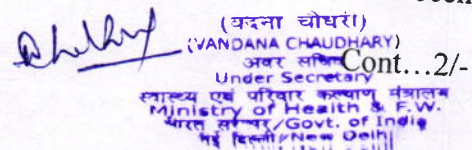 (वन्दना चौधरी)
(VANDANA CHAUDHARY)
अवर सचिव
Cont...2/-
Under Secretary
स्वास्थ्य एवं परिवार कल्याण मंत्रालय
Ministry of Health & F.W.
भारत सरकार/Govt. of India
नई दिल्ली/New Delhi